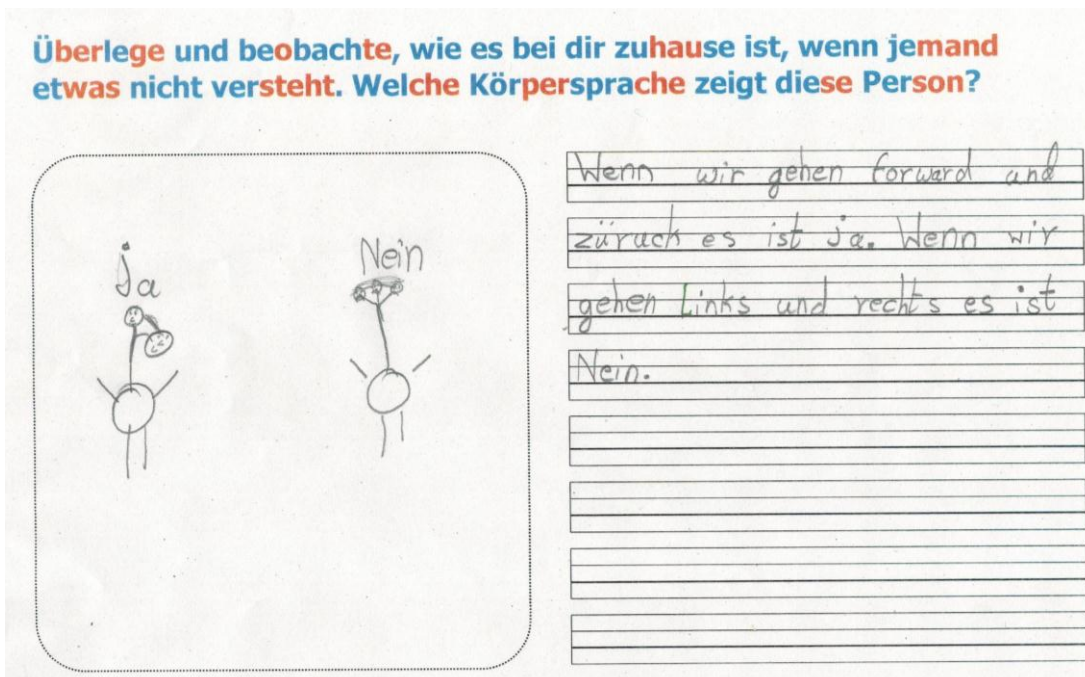 Überlege und beobachte, wie es bei dir zuhause ist, wenn jemand
etwas nicht versteht. Welche Körpersprache zeigt diese Person?
Ja
Nein
Wenn wir gehen forward and
züruck es ist Ja. Wenn wir
gehen Links und rechts es ist
Nein.